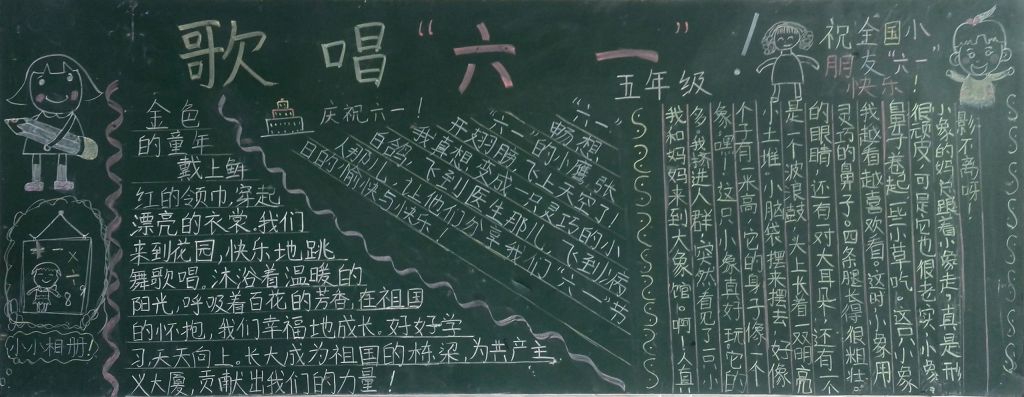 歌唱“六一”！
五年级
祝全国小
朋友“六一”
快乐！
金色
的童年
戴上鲜
红的领巾，穿起
漂亮的衣裳。我们
来到花园，快乐地跳
舞歌唱。沐浴着温暖的
阳光，呼吸着百花的芳香，在祖国
的怀抱，我们幸福地成长。好好学
习天天向上。长大成为祖国的栋梁，为共产主
义大厦，贡献出我们的力量！
小小相册！
庆祝六一！
“六一”
畅想
“六一”的小鹰，张
开翅膀，飞上天空了！
我真想变成一只灵巧的小
白鸽，飞到医生那儿，飞到小病
人那儿，让他们分享我们“六一”节
日的愉快与快乐！
我和妈妈来到大象馆。啊！人真
多，我挤进人群，突然看见了一只小
象，嘿！这只小象真好玩它的
个子有一米高，它的身子像一个
小土堆，小脑袋摆来摆去，好像
是一个波浪鼓，头上长着一双明亮
的眼睛，还有一对大耳朵，还有一个
灵巧的鼻子，四条腿长得很粗壮。
我越看越喜欢看。这时，小象用
鼻子卷起一些小草吃。这只小象
很顽皮，可是也很老实，小象
小象的妈总跟着小象走，真是形
影不离呀！